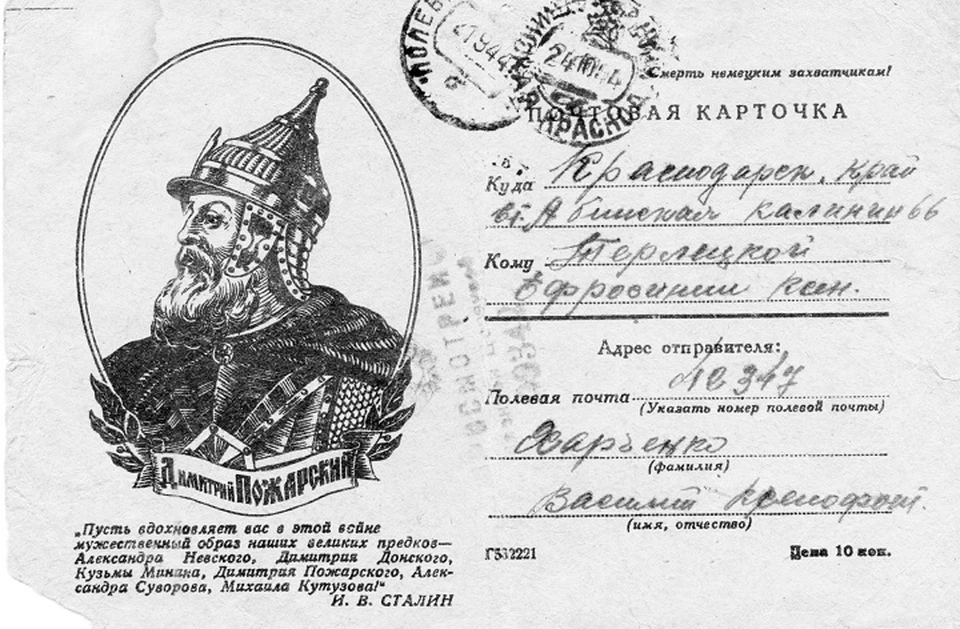 Димитрий Пожарский
„Пусть вдохновляет вас в этой войне
мужественный образ наших великих предков—
Александра Невского, Димитрия Донского,
Кузьмы Минина, Димитрия Пожарского, Алек-
сандра Суворова, Михаила Кутузова!“
И. В. СТАЛИН
Смерть немецким захватчикам!
ПОЧТОВАЯ КАРТОЧКА
Куда Краснодарск. край
ст. Абинская Калинин 66
Кому Терлецкой
Ефросинии Ксен.
Адрес отправителя:
Полевая почта №
(Указать номер полевой почты)
Харченко
(фамилия)
Василий Ксенофонт.
(имя, отчество)
Цена 10 коп.